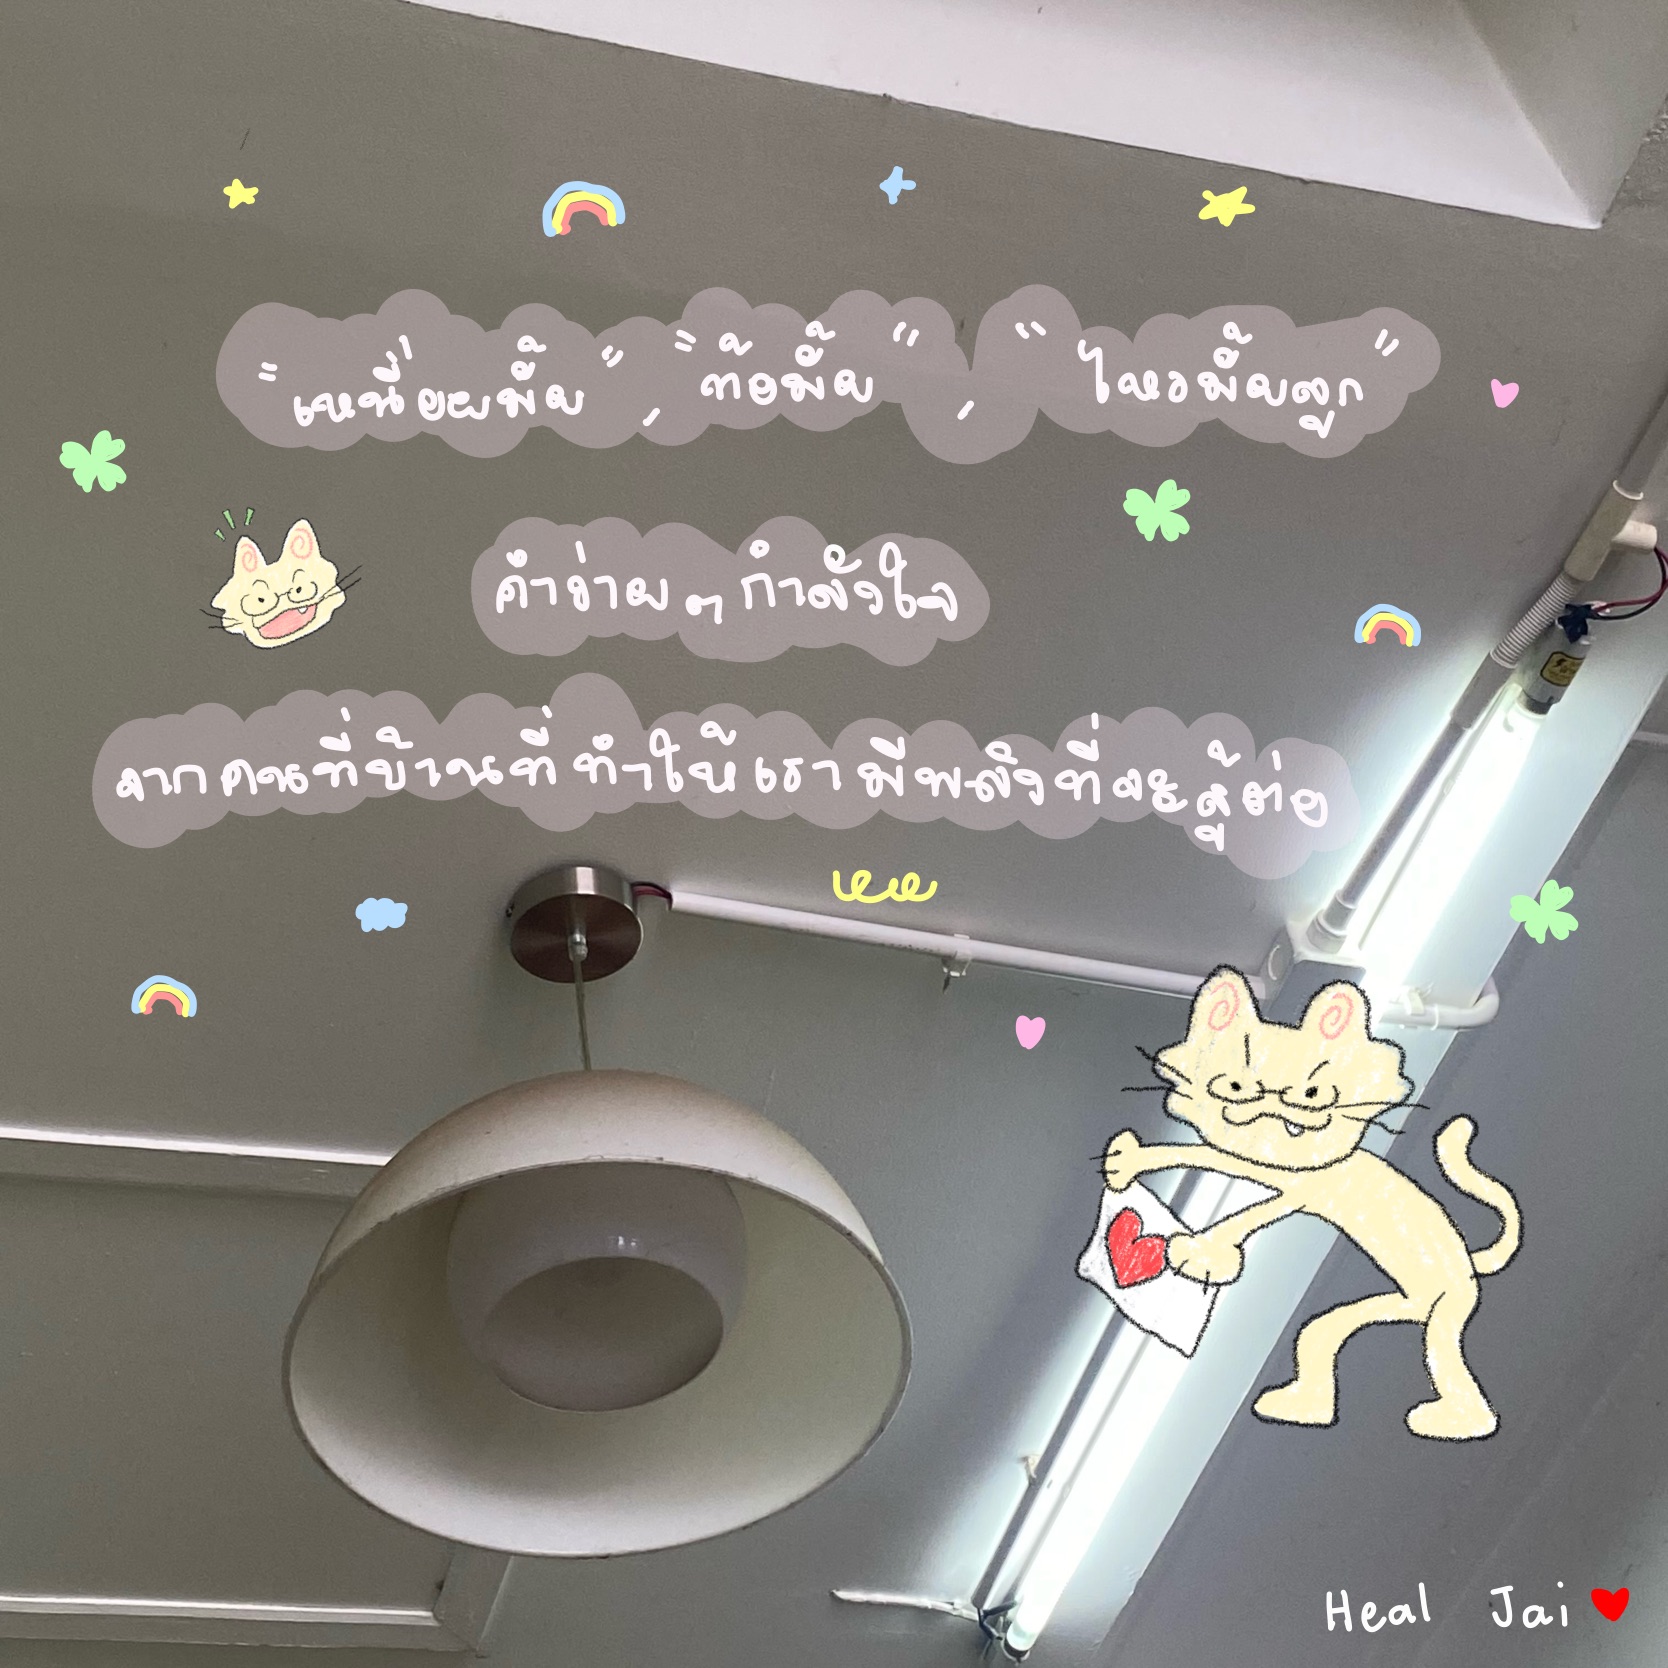 "เหนื่อยมั้ย", "ท้อมั้ย", "ไหวมั้ยลูก"
คำง่ายๆกำลังใจ
จากคนที่บ้านที่ทำให้เรามีพลังที่จะสู้ต่อ
Heal Jai